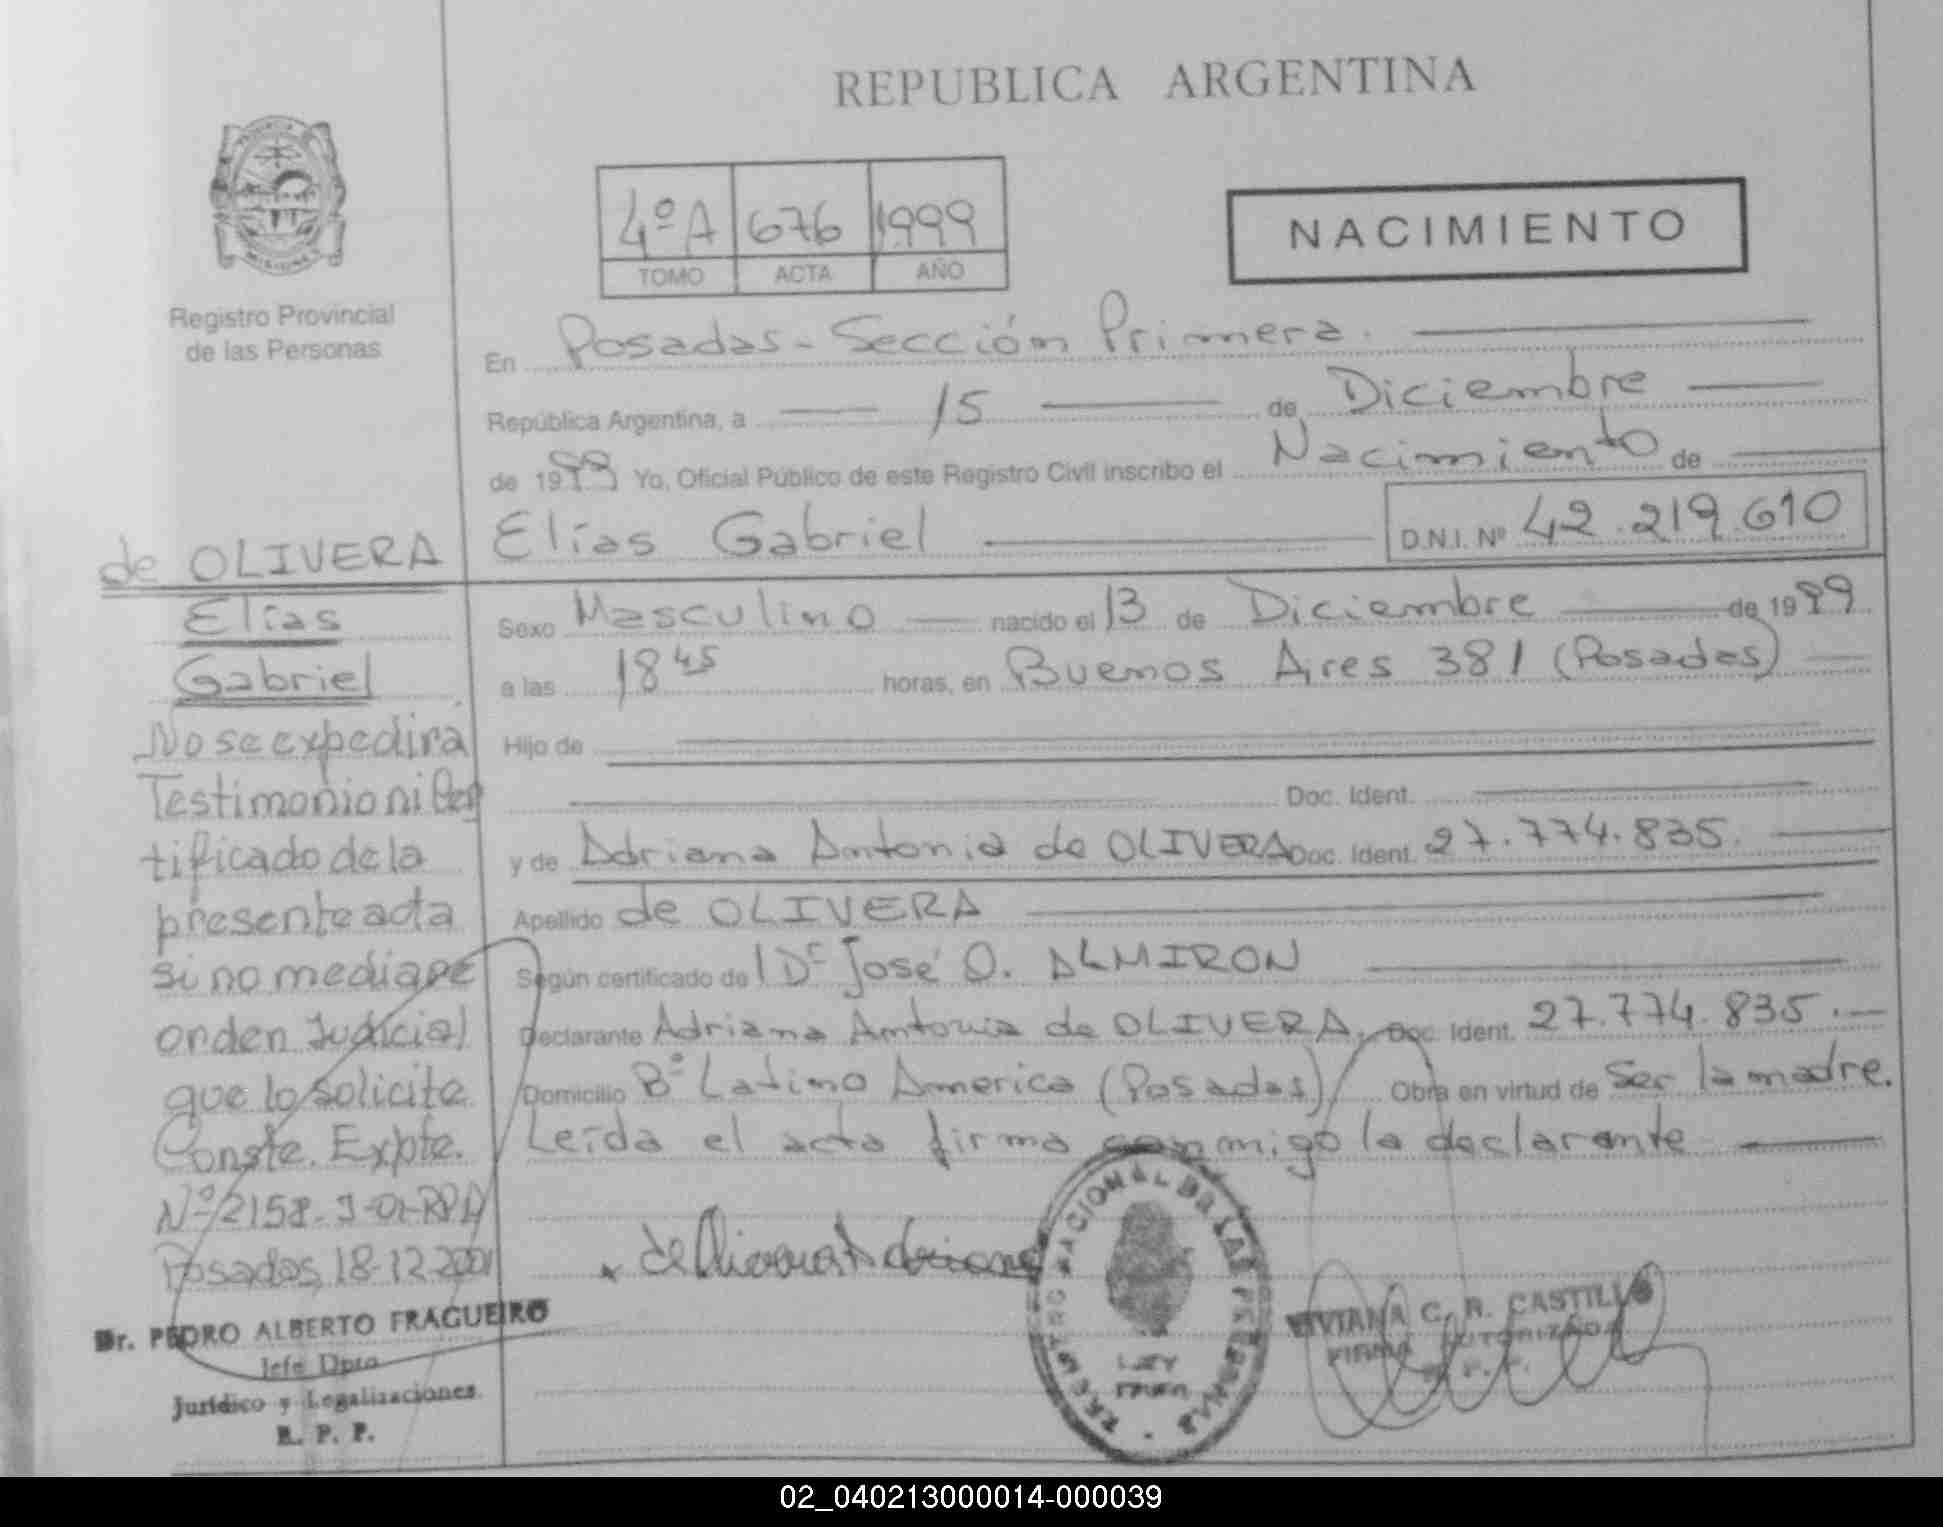 REPUBLICA ARGENTINA
4º A 676 1999
TOMO ACTA AÑO
NACIMIENTO
Registro Provincial
de las Personas
En Posadas - Sección Primera.
República Argentina, a 15 de Diciembre
de 1999 Yo, Oficial Público de este Registro Civil inscribo el Nacimiento de
Elías Gabriel D.N.I. Nº 42.219.610
Sexo Masculino nacido el 13 de Diciembre de 1999
a las 18 45 horas, en Buenos Aires 381 (Posadas)
Hijo de
Doc. Ident.
y de Adriana Antonia de OLIVERA Doc. Ident. 27.774.835.
Apellido de OLIVERA
Según certificado de Dr José O. ALMIRON
Declarante Adriana Antonia de OLIVERA, Doc. Ident. 27.774.835.-
Domicilio Bº Latino America (Posadas) Obra en virtud de Ser la madre.
Leída el acta firma conmigo la declarante
de OLIVERA
Elías
Gabriel
No se expedira
Testimonio ni Cer
tificado de la
presente acta
si no mediare
orden Judicial
que lo solicite
Conste. Expte.
Nº 2158-J-01-RPP
Posadas, 18-12-2001
Dr. PEDRO ALBERTO FRAGUEIRO
Jefe Dpto
Jurídico y Legalizaciones
R. P. P.
de Olivera Adriana
REGISTRO NACIONAL DE LAS PERSONAS
LEY
VIVIANA C. R. CASTILLO
FIRMA AUTORIZADA
R. P. P.
02_040213000014-000039